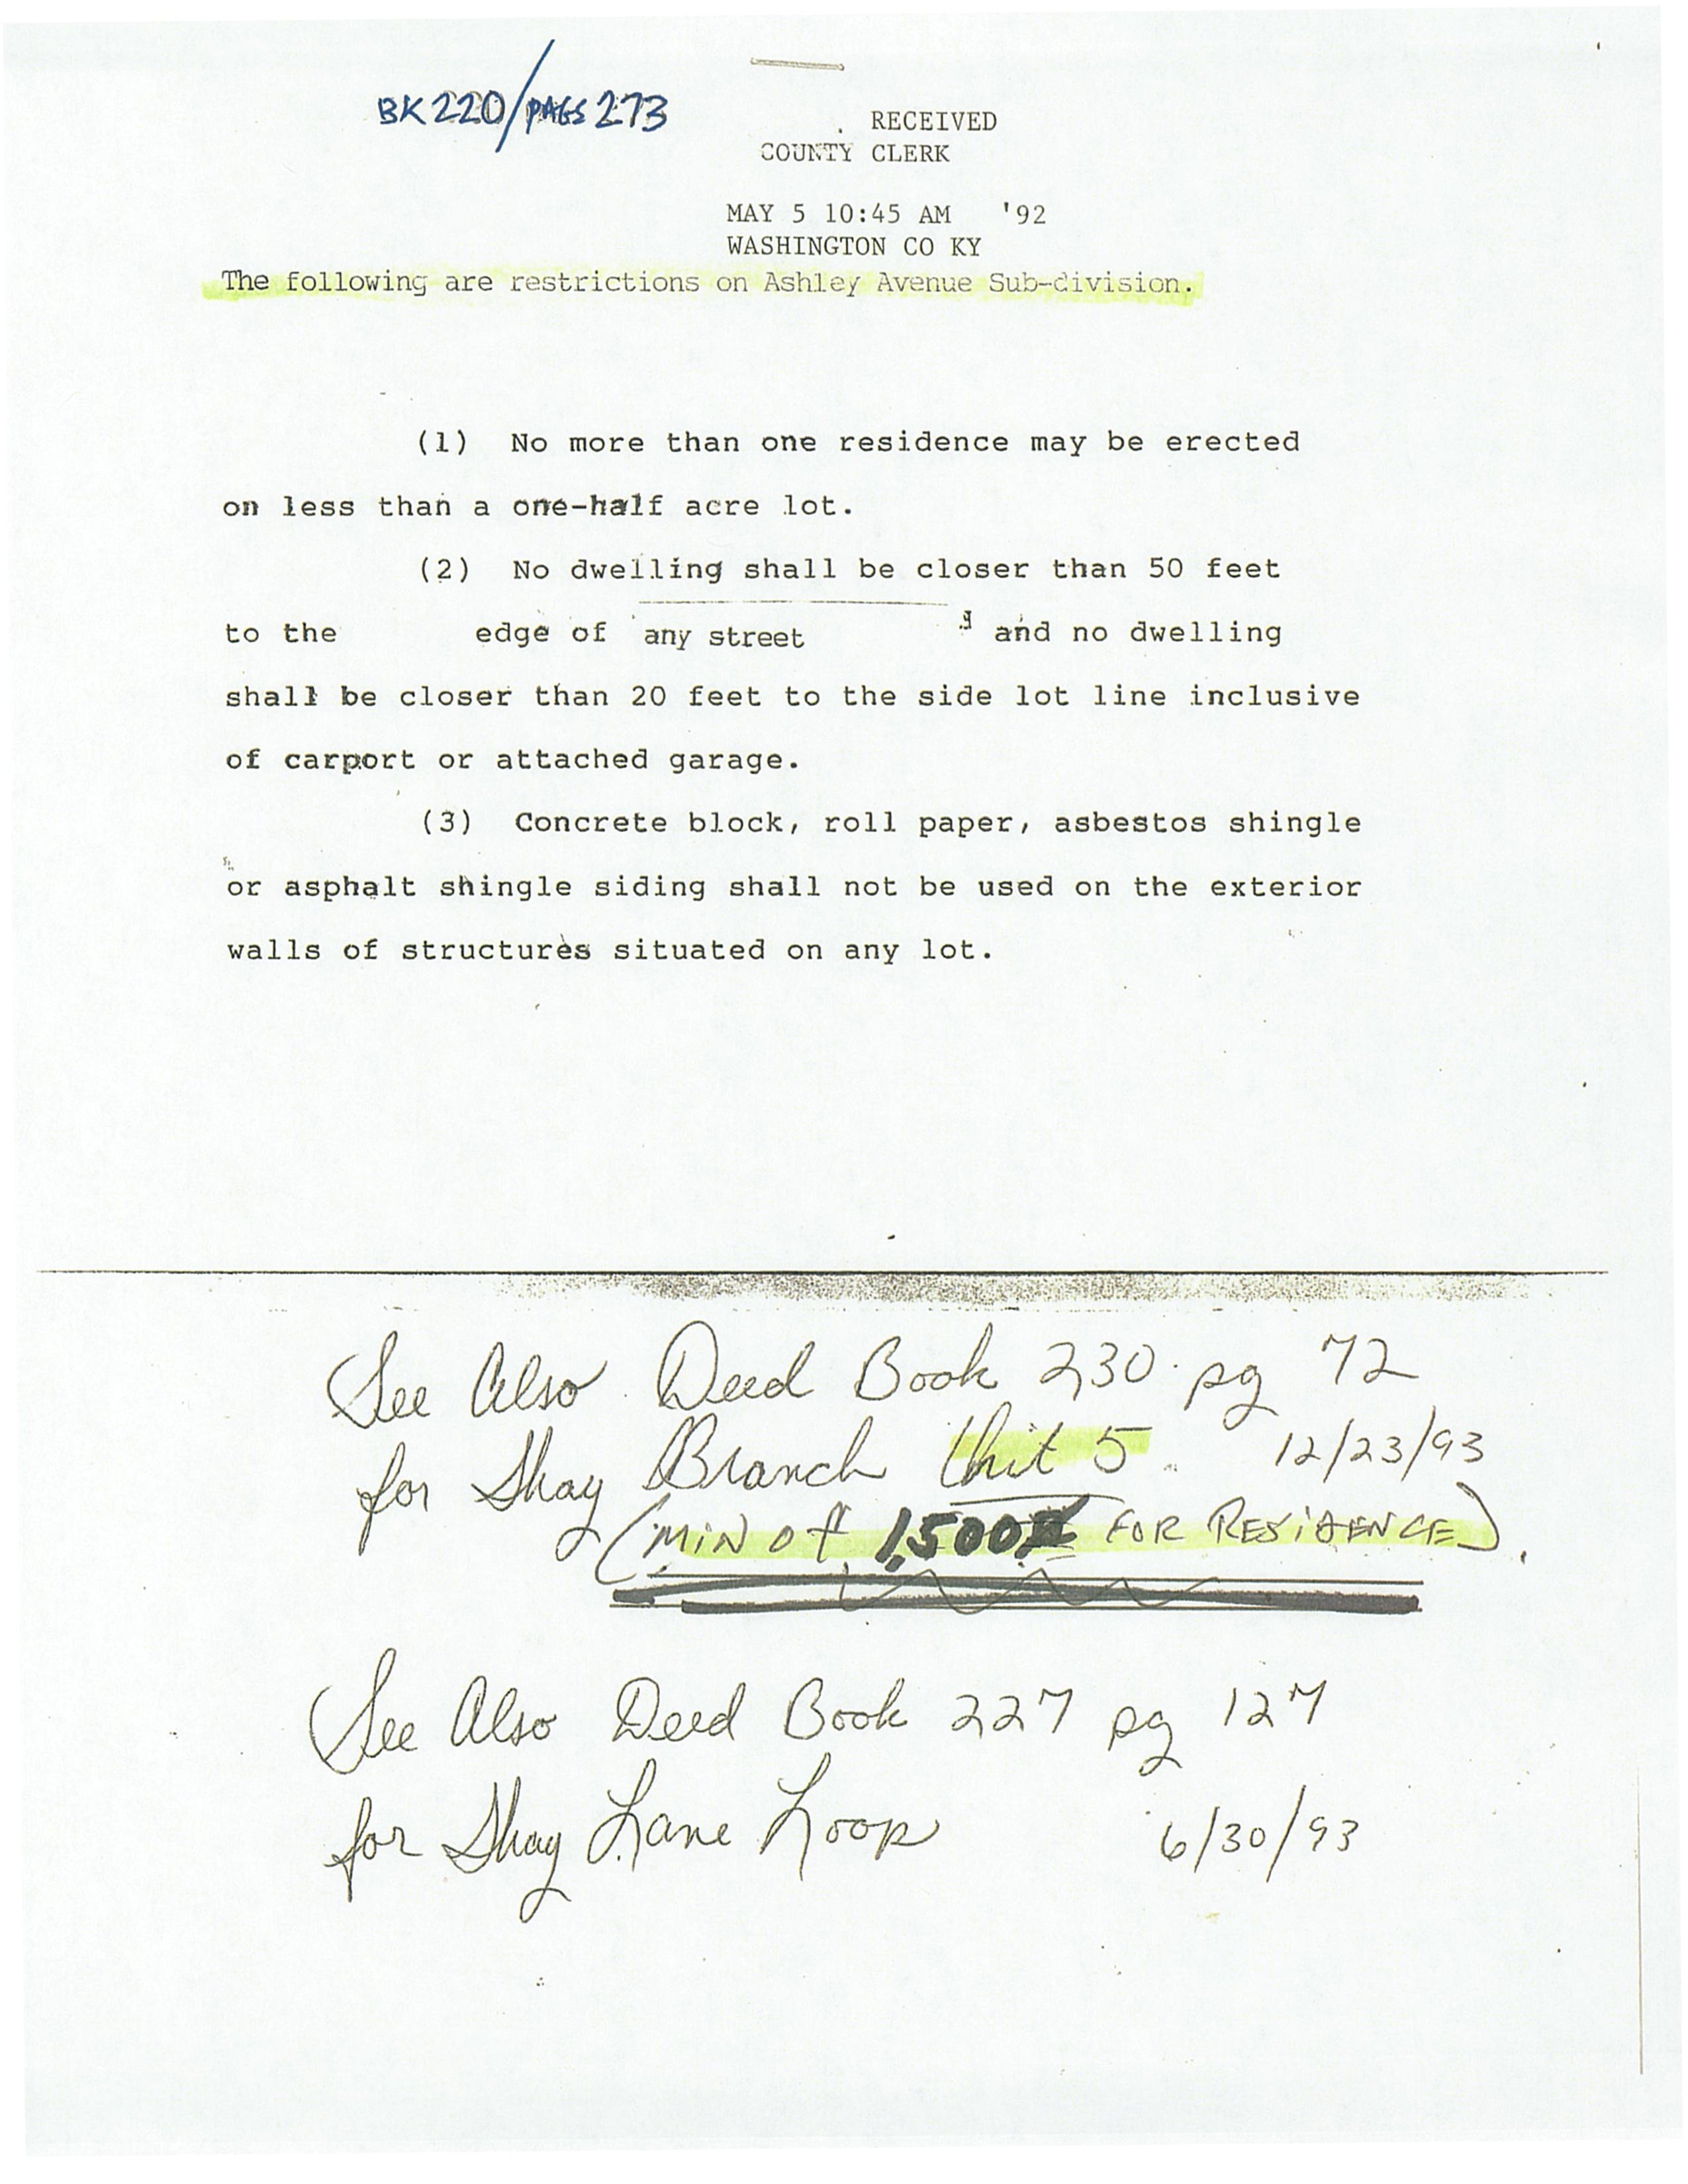 BK 220/PAGE 273
RECEIVED
COUNTY CLERK
MAY 5 10:45 AM '92
WASHINGTON CO KY
The following are restrictions on Ashley Avenue Sub-division.
(1) No more than one residence may be erected
on less than a one-half acre lot.
(2) No dwelling shall be closer than 50 feet
to the edge of any street and no dwelling
shall be closer than 20 feet to the side lot line inclusive
of carport or attached garage.
(3) Concrete block, roll paper, asbestos shingle
or asphalt shingle siding shall not be used on the exterior
walls of structures situated on any lot.
See Also Deed Book 230 pg 72
for Shay Branch Unit 5 12/23/93
(MIN of 1,500 FOR RESIDENCE).
See Also Deed Book 227 pg 127
for Shay Lane Loop 6/30/93